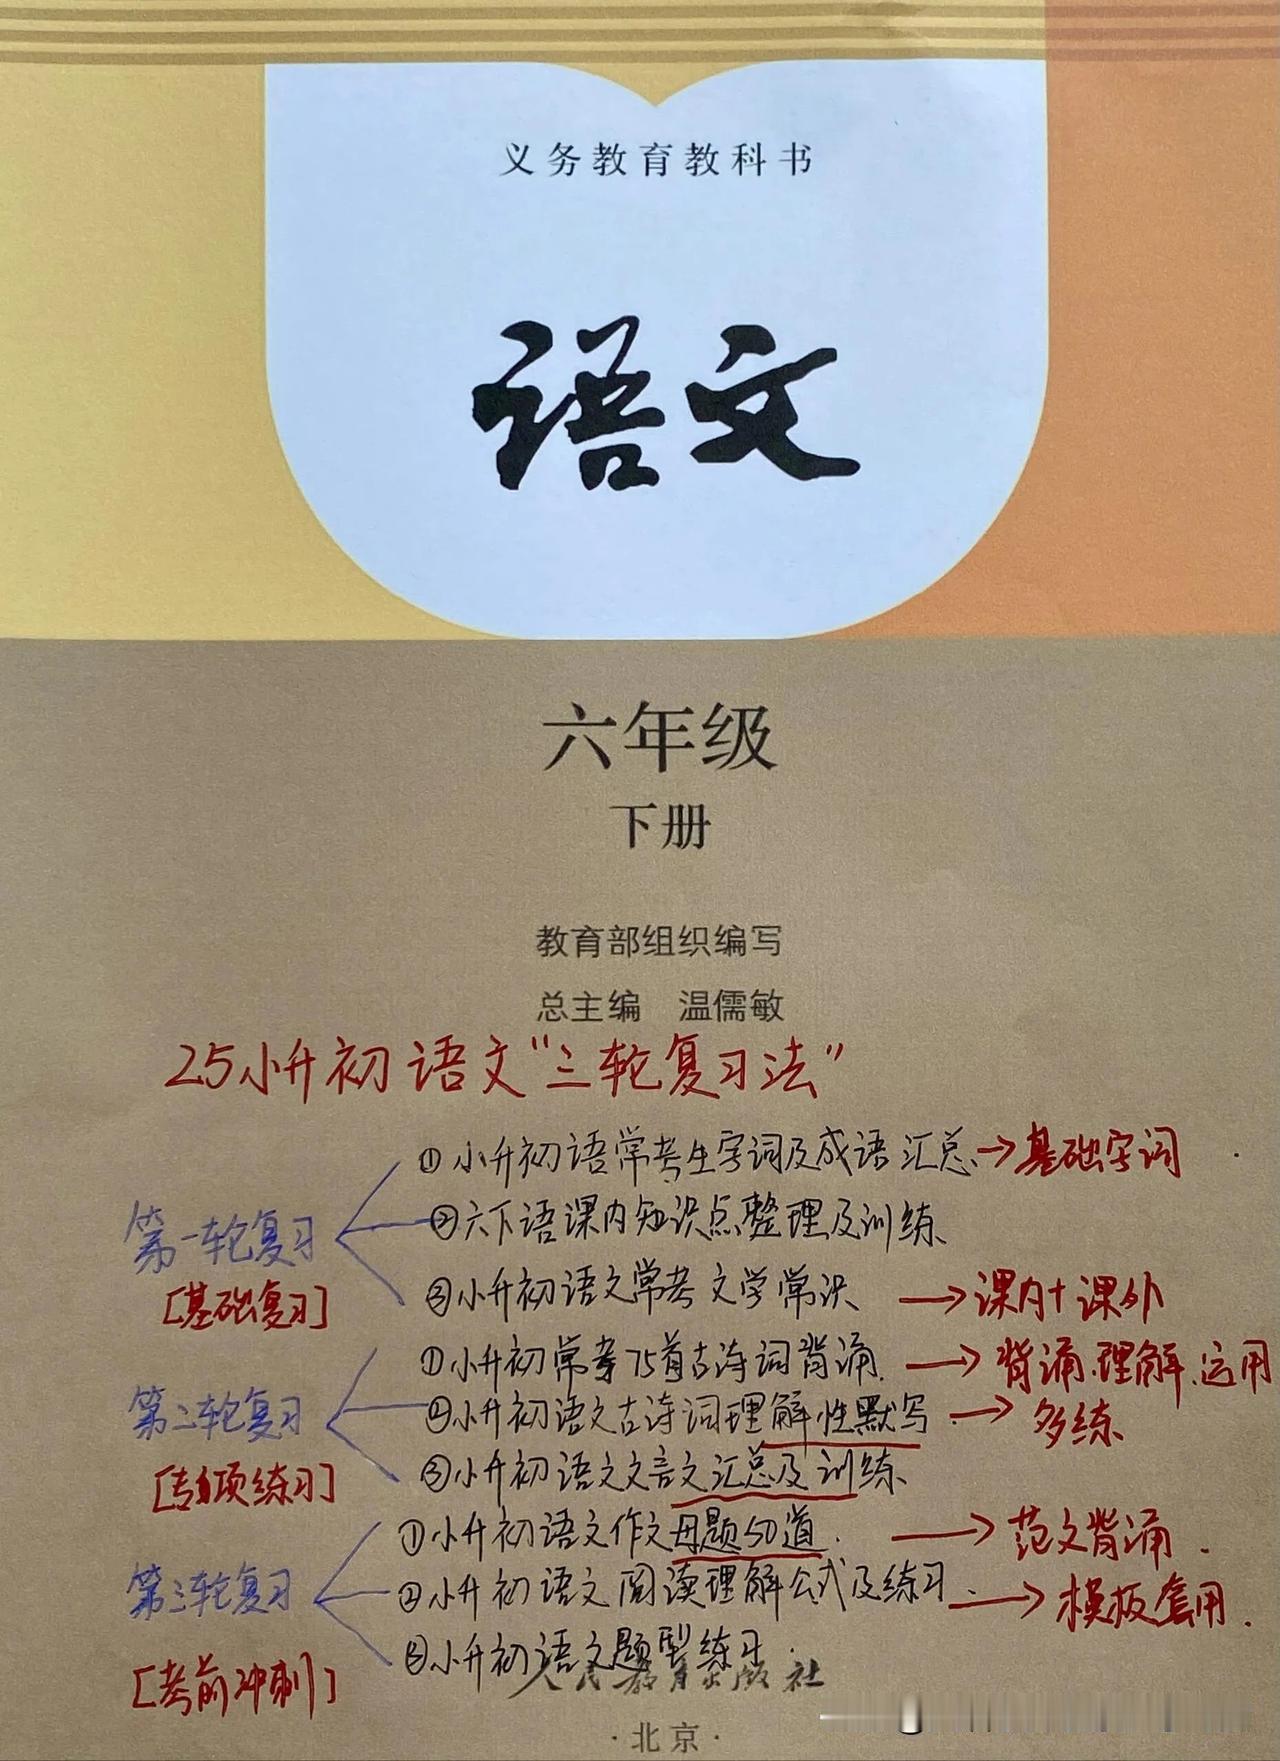 义务教育教科书
语文
六年级
下册
教育部组织编写
总主编 温儒敏
25小升初语文“三轮复习法”
第一轮复习
[基础复习]
①小升初语常考生字词及成语汇总→基础字词
②六下语课内知识点整理及训练
③小升初语文常考文学常识→课内+课外
第二轮复习
[专项练习]
①小升初常考75首古诗词背诵→背诵、理解、运用
②小升初语文古诗词理解性默写→多练
③小升初语文文言文汇总及训练
第三轮复习
[考前冲刺]
①小升初语文作文母题50道.→范文背诵.
②小升初语文阅读理解公式及练习.→模板套用.
③小升初语文题型练习.
人民教育出版社
·北京·